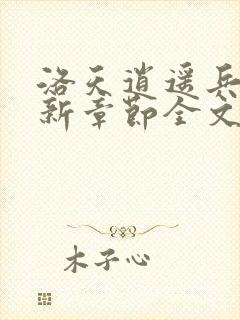 洛天逍遥兵
新章节全文
木子心